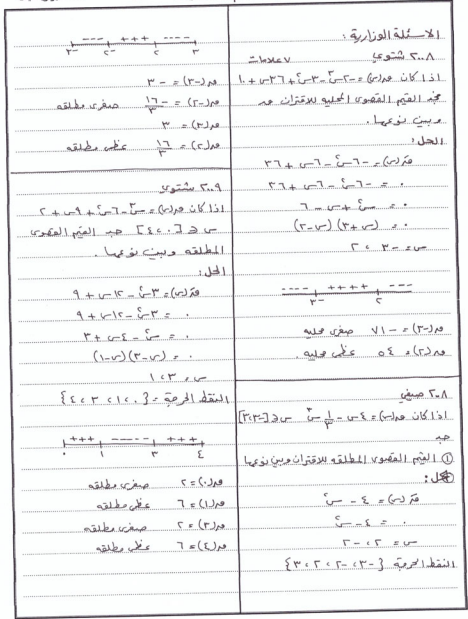 الاسئلة الوزارية :
٢٠٠٨ شتوي ٧ علامات
اذا كان ق(س) = -٢س٣ - ٣س٢ + ٣٦س + ١٠
جد القيم القصوى المحلية للاقتران ق
وبين نوعها .
الحل :
قَ(س) = -٦س٢ - ٦س + ٣٦
٠ = -٦س٢ - ٦س + ٣٦
٠ = س٢ + س - ٦
٠ = (س + ٣) (س - ٢)
س = -٣ ، ٢
---- ++++ ---
-٣ ٢
ق(-٣) = -٧١ صغرى محليه
ق(٢) = ٥٤ عظمى محليه .
٢٠٠٨ صيفي
اذا كان ق(س) = ٤س - ١/٣ س٣ س ∈ [-٣،٣]
جد
① القيم القصوى المطلقه للاقتران وبين نوعها
الحل :
قَ(س) = ٤ - س٢
٠ = ٤ - س٢
س = ٢ ، -٢
النقط الحرجة {-٣ ، -٢ ، ٢ ، ٣}
--- +++ ----
-٣ -٢ ٢ ٣
ق(-٣) = -٣
ق(-٢) = -١٦/٣ صغرى مطلقه
ق(٣) = ٣
ق(٢) = ١٦/٣ عظمى مطلقه
٢٠٠٩ شتوي
اذا كان ق(س) = س٣ - ٦س٢ + ٩س + ٢
س ∈ [٠ ، ٤] جد القيم القصوى
المطلقه وبين نوعها .
الحل :
قَ(س) = ٣س٢ - ١٢س + ٩
٠ = ٣س٢ - ١٢س + ٩
٠ = س٢ - ٤س + ٣
٠ = (س - ٣) (س - ١)
س = ٣ ، ١
النقط الحرجة = {٠ ، ١ ، ٣ ، ٤}
+++ ----- +++
٠ ١ ٣ ٤
ق(٠) = ٢ صغرى مطلقه
ق(١) = ٦ عظمى مطلقه
ق(٣) = ٢ صغرى مطلقه
ق(٤) = ٦ عظمى مطلقه